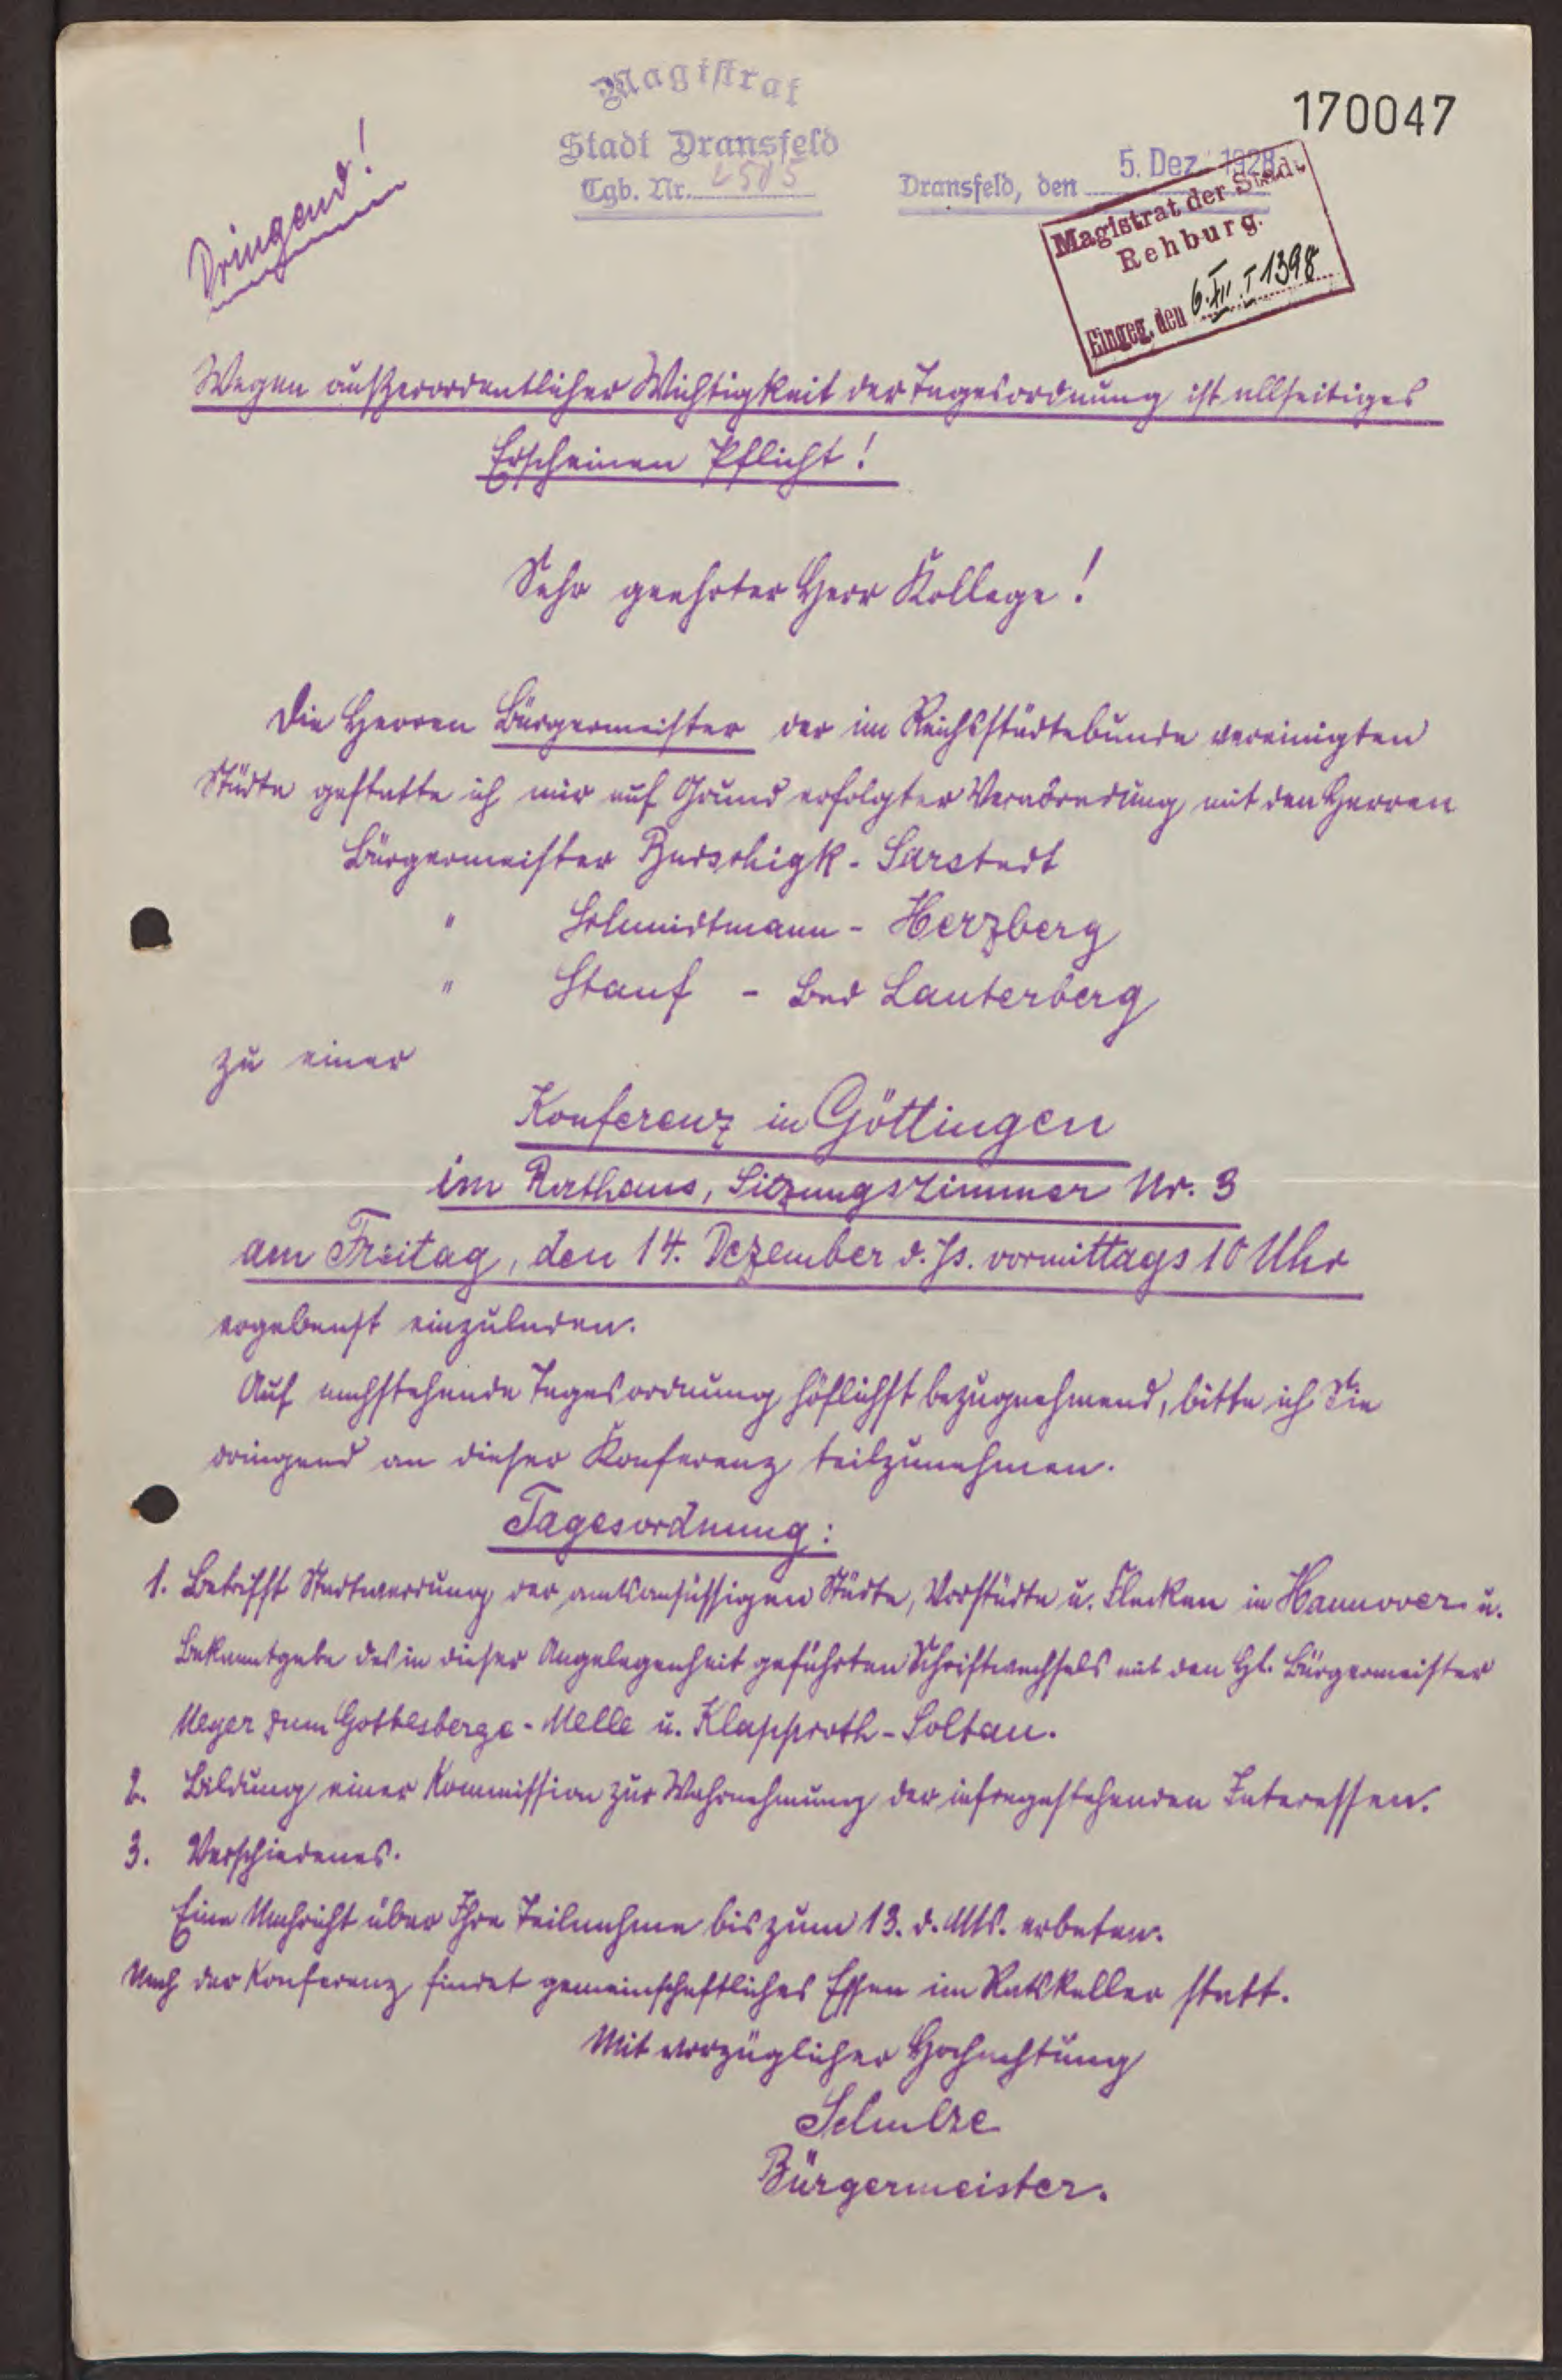 170047
Magistrat
Stadt Dransfeld
Tgb. Nr. 4505
Dransfeld, den 5. Dez. 1928
Magistrat der Stadt
Rehburg.
Eingeg. den 6. XII. I 1398
Dringend!
Wegen außerordentlicher Wichtigkeit der Tagesordnung ist allseitiges
Erscheinen Pflicht!
Sehr geehrter Herr Kollege!
Die Herren Bürgermeister der im Reichsstädtebunde vereinigten
Städte gestatte ich mir auf Grund erfolgter Verabredung mit den Herren
Bürgermeister - Sarstedt
" Schmidtmann - Herzberg
" Stauf - Bad Lauterberg
zu einer
Konferenz in Göttingen
im Rathaus, Sitzungszimmer Nr. 3
am Freitag, den 14. Dezember d. Js. vormittags 10 Uhr
ergebenst einzuladen.
Auf nachstehende Tagesordnung höflichst bezugnehmend, bitte ich Sie
dringend an dieser Konferenz teilzunehmen.
Tagesordnung:
1. Betrifft Stadtwerdung der amtsansässigen Städte, Vorstädte u. Flecken in Hannover u.
Bekanntgabe des in dieser Angelegenheit geführten Schriftwechsels mit den Hl. Bürgermeister
Meyer zum Gottesberge - Melle u. Klapproth - Soltau.
2. Bildung einer Kommission zur Wahrnehmung der infragestehenden Interessen.
3. Verschiedenes.
Eine Nachricht über Ihre Teilnahme bis zum 13. d. Mts. erbeten.
Nach der Konferenz findet gemeinschaftliches Essen im Ratskeller statt.
Mit vorzüglicher Hochachtung
Schulze
Bürgermeister.